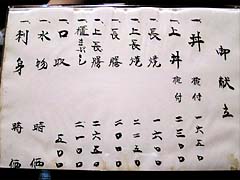 御献立
一、丼 肝吸付 一六五〇
一、上丼 肝吸付 二三〇〇
一、長焼 一八〇〇
一、上長焼 二三五〇
一、長膳 二一〇〇
一、上長膳 二六五〇
一、櫃まぶし 二一〇〇
一、口取 五〇〇
一、水物 時価
一、刺身 時価